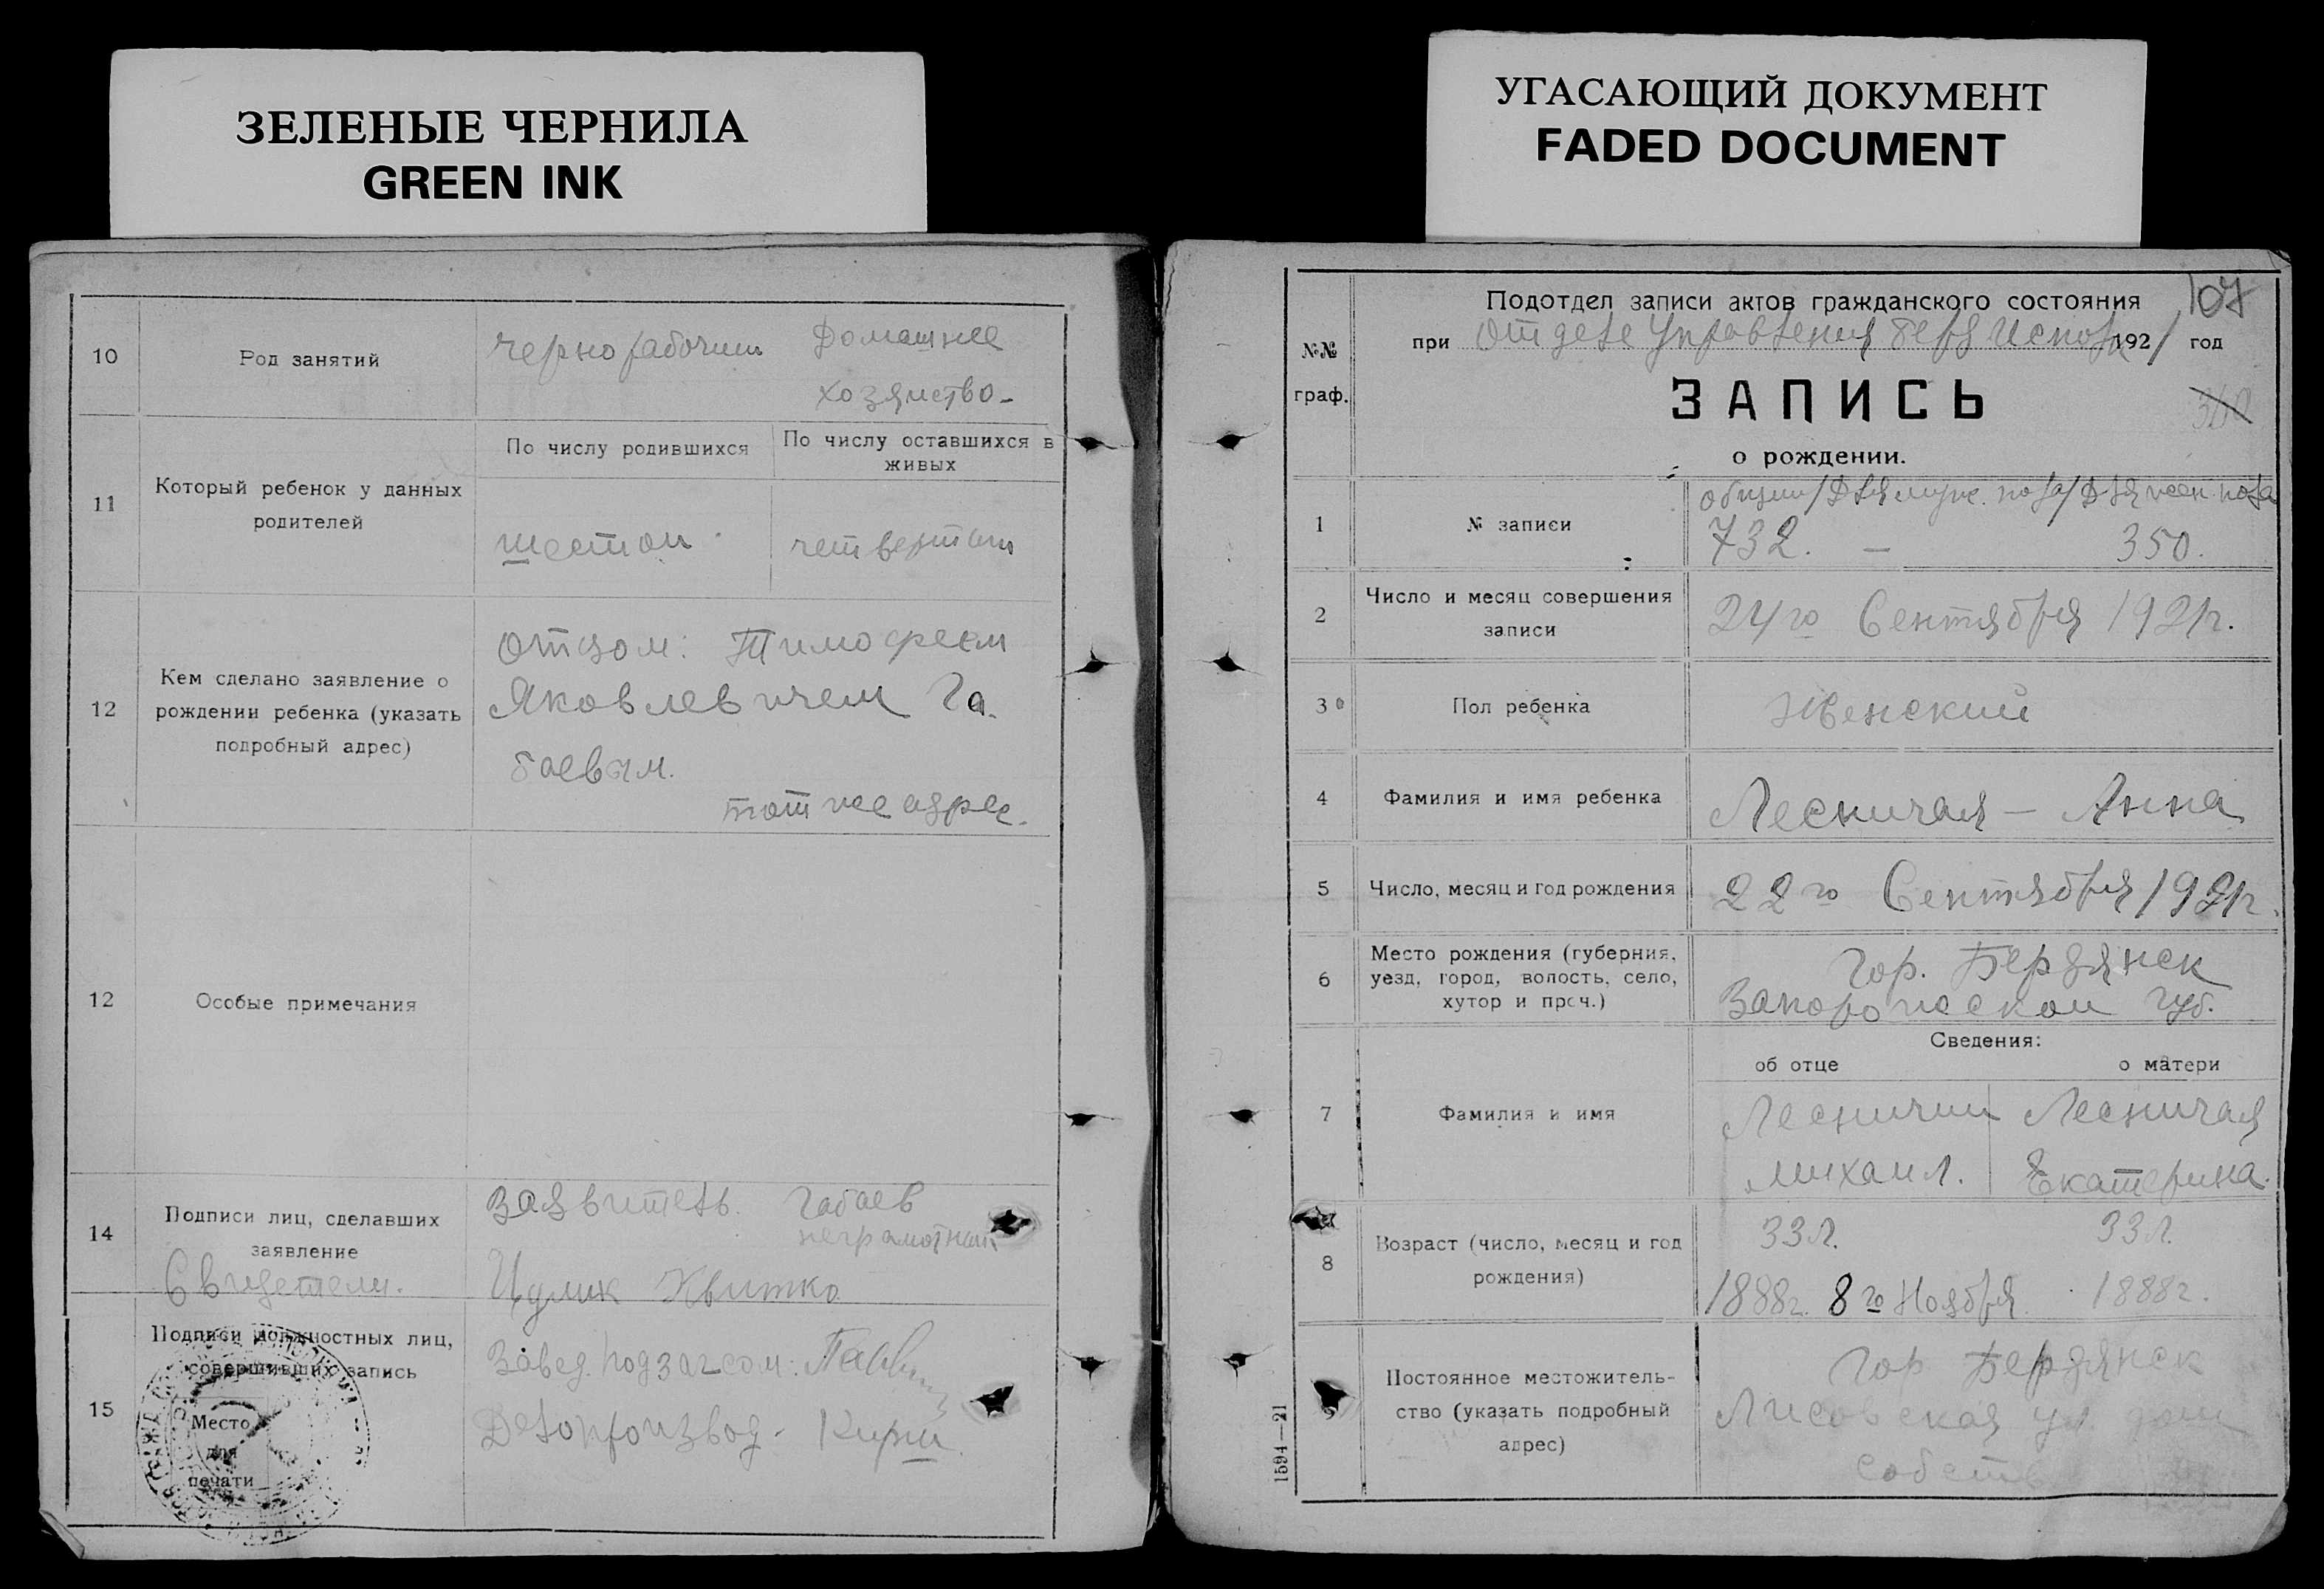 ЗЕЛЕНЫЕ ЧЕРНИЛА
GREEN INK
10
Род занятий
чернорабочий
Домашнее
хозяйство-
11
Который ребенок у данных
родителей
По числу родившихся
По числу оставшихся в
живых
шестой
четвертый
12
Кем сделано заявление о
рождении ребенка (указать
подробный адрес)
Отцом: Тимофеем
Яковлевичем Га-
баевым.
тот же адрес.
12
Особые примечания
14
Подписи лиц, сделавших
заявление
Свидетели.
Заявитель. Габаев
неграмотный
Цулик Квитко
15
Подписи должностных лиц,
совершивших запись
Место
для
печати
Завед. подзагсом:
Делопроизвод-
УГАСАЮЩИЙ ДОКУМЕНТ
FADED DOCUMENT
107
№№
граф.
Подотдел записи актов гражданского состояния
при Отделе Управления Берд Исполк 1921 год
ЗАПИСЬ
о рождении.
1
№ записи
общий/Для муж. пола/Для жен. пола
732. — 350.
2
Число и месяц совершения
записи
24го Сентября 1921г.
3
Пол ребенка
Женский
4
Фамилия и имя ребенка
Лесничая — Анна
5
Число, месяц и год рождения
22го Сентября 1921г.
6
Место рождения (губерния,
уезд, город, волость, село,
хутор и проч.)
Гор. Бердянск
Запорожской губ.
Сведения:
об отце
о матери
7
Фамилия и имя
Лесничий
Михаил.
Лесничая
Екатерина.
8
Возраст (число, месяц и год
рождения)
33л.
33л.
1888г. 8го Ноября
1888г.
9
Постоянное местожитель-
ство (указать подробный
адрес)
Гор Бердянск
Лисовская ул. дом
собств
1594—21